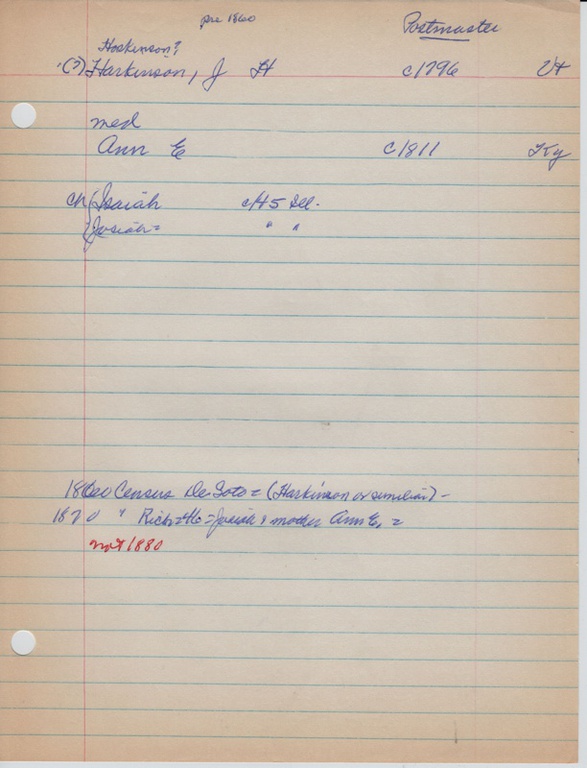 pre 1860 Postmaster
Hoskinson?
(?) Harkinson, J H c1796 Vt
med
Ann E c1811 Ky
ch { Isaiah c/45 Ill.
{ Josiah = " "
1860 Census De Soto = (Harkinson or similiar) -
1870 " Rich = Josiah & mother Ann E. =
not 1880